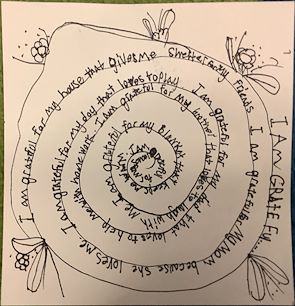 I AM GRATEFUL
I am grateful for my house that gives me shelter and my friends. I am grateful for My mom because she loves me.
I am grateful for my dog that loves to play. I am grateful for my dad that loves to help me with home work.
I am grateful for my brother that loves to laugh with me. I am grateful for my Blanket
keep me warm